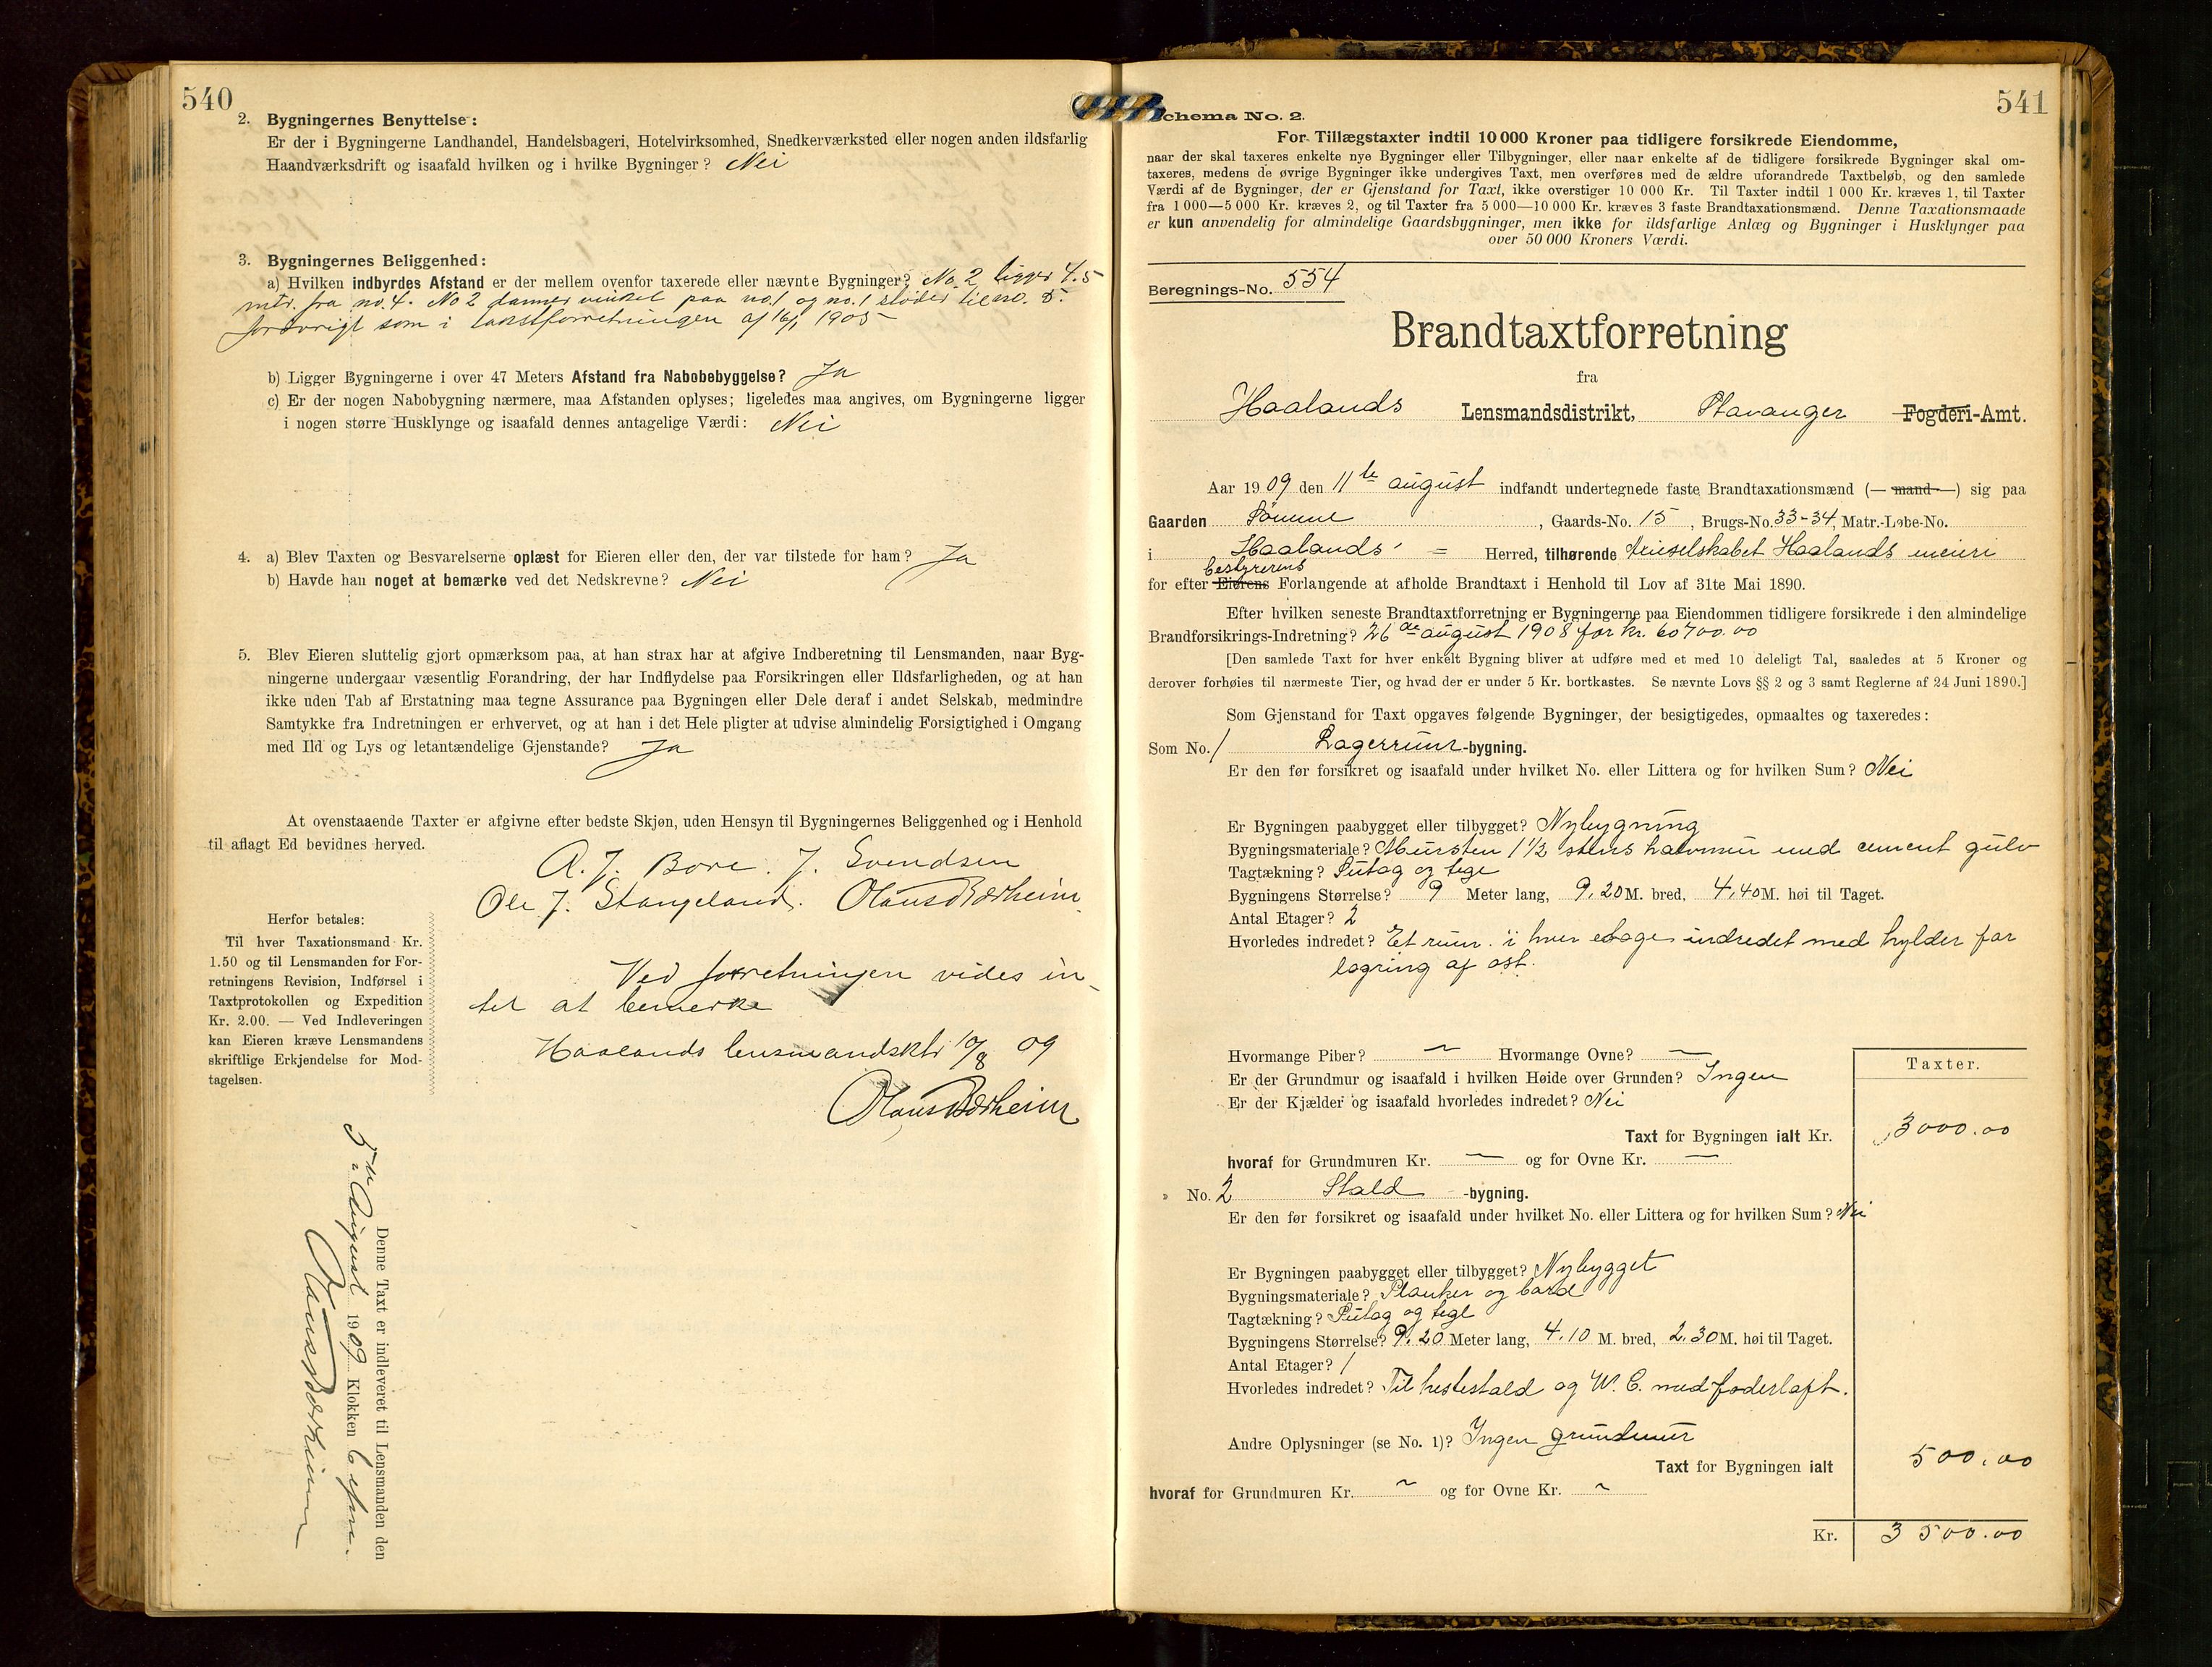 540
2. Bygningernes Benyttelse:
Er der i Bygningerne Landhandel, Handelsbageri, Hotelvirksomhed, Snedkerværksted eller nogen anden ildsfarlig
Haandværksdrift og isaafald hvilken og i hvilke Bygninger? Nei
3. Bygningernes Beliggenhed:
a) Hvilken indbyrdes Afstand er der mellem ovenfor taxerede eller nævnte Bygninger? No. 2 ligger 4.5
mtr. fra no. 4. No 2 danner vinkel paa no. 1 og no. 1 støder til no. 5.
forøvrigt som i takstforretningen af 16/1 1905
b) Ligger Bygningerne i over 47 Meters Afstand fra Nabobebyggelse? Ja
c) Er der nogen Nabobygning nærmere, maa Afstanden oplyses; ligeledes maa angives, om Bygningerne ligger
i nogen større Husklynge og isaafald dennes antagelige Værdi: Nei
4. a) Blev Taxten og Besvarelserne oplæst for Eieren eller den, der var tilstede for ham? Ja
b) Havde han noget at bemærke ved det Nedskrevne? Nei
5. Blev Eieren sluttelig gjort opmærksom paa, at han strax har at afgive Indberetning til Lensmanden, naar Byg-
ningerne undergaar væsentlig Forandring, der har Indflydelse paa Forsikringen eller Ildsfarligheden, og at han
ikke uden Tab af Erstatning maa tegne Assurance paa Bygningen eller Dele deraf i andet Selskab, medmindre
Samtykke fra Indretningen er erhvervet, og at han i det Hele pligter at udvise almindelig Forsigtighed i Omgang
med Ild og Lys og letantændelige Gjenstande? Ja
At ovenstaaende Taxter er afgivne efter bedste Skjøn, uden Hensyn til Bygningernes Beliggenhed og i Henhold
til aflagt Ed bevidnes herved.
A. J. Bore. J. Svendsen
Ole J. Stangeland. Olaus Bærheim
Herfor betales:
Til hver Taxationsmand Kr.
1.50 og til Lensmanden for For-
retningens Revision, Indførsel i
Taxtprotokollen og Expedition
Kr. 2.00. — Ved Indleveringen
kan Eieren kræve Lensmandens
skriftlige Erkjendelse for Mod-
tagelsen.
Ved forretningen vides in-
tet at bemerke
Haalands lensmandsktr 10/8 09
Olaus Bærheim
Denne Taxt er indleveret til Lensmanden den
5te August 1909 Klokken 6 efm.
Olaus Bærheim
541
Schema No. 2.
For Tillægstaxter indtil 10 000 Kroner paa tidligere forsikrede Eiendomme,
naar der skal taxeres enkelte nye Bygninger eller Tilbygninger, eller naar enkelte af de tidligere forsikrede Bygninger skal om-
taxeres, medens de øvrige Bygninger ikke undergives Taxt, men overføres med de ældre uforandrede Taxtbeløb, og den samlede
Værdi af de Bygninger, der er Gjenstand for Taxt, ikke overstiger 10 000 Kr. Til Taxter indtil 1 000 Kr. kræves 1, til Taxter
fra 1 000—5 000 Kr. kræves 2, og til Taxter fra 5 000—10 000 Kr. kræves 3 faste Brandtaxationsmænd. Denne Taxationsmaade
er kun anvendelig for almindelige Gaardsbygninger, men ikke for ildsfarlige Anlæg og Bygninger i Husklynger paa
over 50 000 Kroners Værdi.
Beregnings-No. 554
Brandtaxtforretning
fra
Haalands Lensmandsdistrikt, Stavanger Fogderi-Amt.
Aar 1909 den 11te august indfandt undertegnede faste Brandtaxationsmænd (— mand —) sig paa
Gaarden Sømme, Gaards-No. 15, Brugs-No. 33-34, Matr.-Løbe-No.
i Haalands Herred, tilhørende Meieselskabet Haalands meieri
bestyrerens
for efter Eierens Forlangende at afholde Brandtaxt i Henhold til Lov af 31te Mai 1890.
Efter hvilken seneste Brandtaxtforretning er Bygningerne paa Eiendommen tidligere forsikrede i den almindelige
Brandforsikrings-Indretning? 26de august 1908 for kr. 60700.00
[Den samlede Taxt for hver enkelt Bygning bliver at udføre med et med 10 deleligt Tal, saaledes at 5 Kroner og
derover forhøies til nærmeste Tier, og hvad der er under 5 Kr. bortkastes. Se nævnte Lovs §§ 2 og 3 samt Reglerne af 24 Juni 1890.]
Som Gjenstand for Taxt opgaves følgende Bygninger, der besigtigedes, opmaaltes og taxeredes:
Som No. 1 Lagerrums-bygning.
Er den før forsikret og isaafald under hvilket No. eller Littera og for hvilken Sum? Nei
Er Bygningen paabygget eller tilbygget? Nybygning
Bygningsmateriale? Mursten 1 1/2 stens hulmur med cement gulv
Tagtækning? Sutag og tegl
Bygningens Størrelse? 9 Meter lang, 9.20 M. bred, 4.40 M. høi til Taget.
Antal Etager? 2
Hvorledes indredet? Et rum i hver etage indredet med hylder for
lagring af ost.
Hvormange Piber? — Hvormange Ovne? —
Er der Grundmur og isaafald i hvilken Høide over Grunden? Ingen
Er der Kjælder og isaafald hvorledes indredet? Nei
Taxter.
Taxt for Bygningen ialt Kr. 3000.00
hvoraf for Grundmuren Kr. — og for Ovne Kr. —
» No. 2 Stald -bygning.
Er den før forsikret og isaafald under hvilket No. eller Littera og for hvilken Sum? Nei
Er Bygningen paabygget eller tilbygget? Nybygget
Bygningsmateriale? Planker og bord
Tagtækning? Sutag og tegl
Bygningens Størrelse? 9.20 Meter lang, 4.10 M. bred, 2.30 M. høi til Taget.
Antal Etager? 1
Hvorledes indredet? Til hestestald og W. C. med foderloft.
Andre Oplysninger (se No. 1)? Ingen grundmur
Taxt for Bygningen ialt 500.00
hvoraf for Grundmuren Kr. — og for Ovne Kr. —
Kr. 3500.00